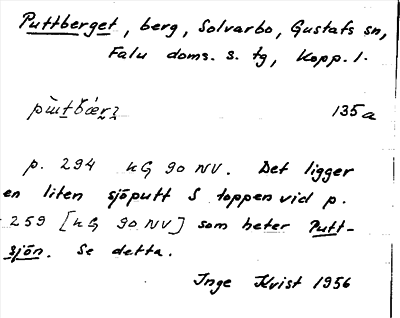 Puttberget, berg, Solvarbo, Gustafs sn,
Falu doms. s. tg, Kopp. l.
135a
p. 294 kG 90 NV. Det ligger
en liten sjöputt S toppen vid p.
259 [kG 90 NV] som heter Putt-
sjön. Se detta.
Inge Kvist 1956